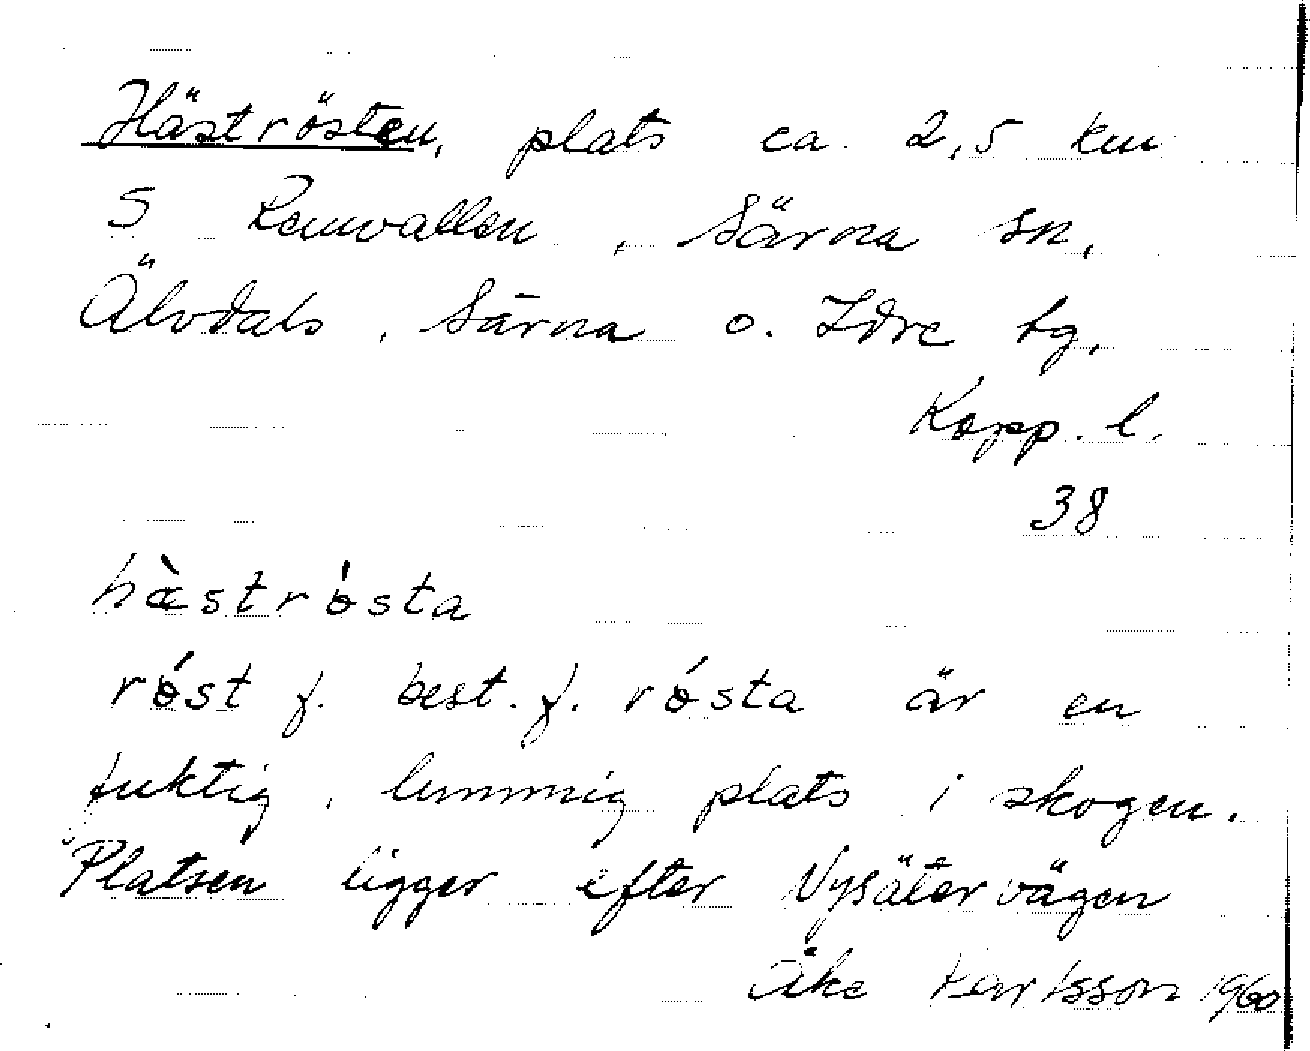 Häströsten, plats ca. 2,5 km
S Remvallen, Särna sn,
Älvdals, Särna o. Idre tg,
Kopp. l.
38
hàströ́sta
rö́st f. best. f. rö́sta är en
fuktig, lummig plats i skogen.
Platsen ligger efter Nysätervägen
Åke Karlsson 1960